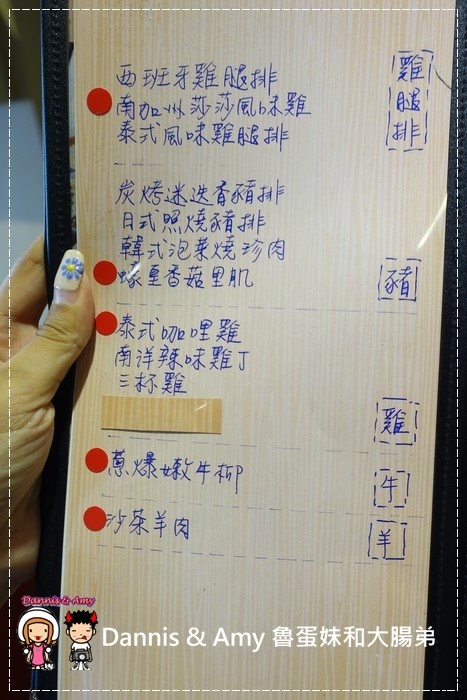 西班牙雞腿排
南加州莎莎風味雞
泰式風味雞腿排
雞腿排
炭烤迷迭香豬排
日式照燒豬排
韓式泡菜燒珍肉
蠔皇香菇里肌
豬
泰式咖哩雞
南洋辣味雞丁
三杯雞
雞
蔥爆嫩牛柳
牛
沙茶羊肉
羊
Dannis & Amy
Dannis & Amy 魯蛋妹和大腸弟